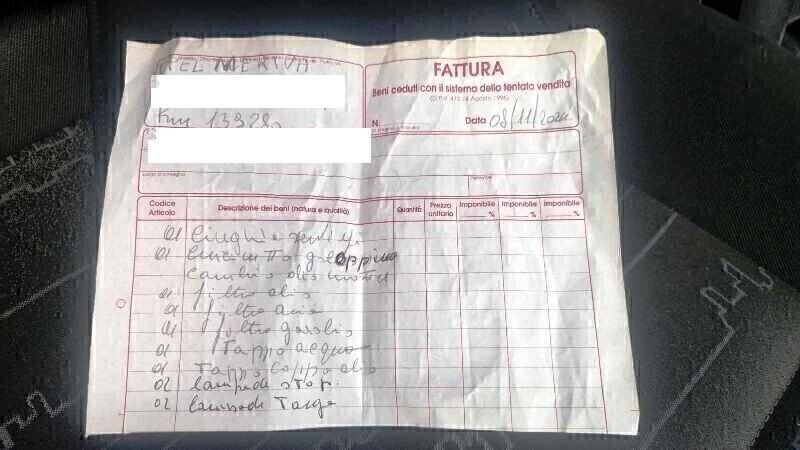 OPEL MERIVA
FATTURA
Beni ceduti con il sistema della tentata vendita
Km
N.
Data 08/11/2021
Codice Articolo
Descrizione dei beni (natura e qualità)
Quantità
Prezzo unitario
Imponibile %
Imponibile %
Imponibile %
01 Cinghia
01
Cambio olio motore
01 filtro olio
01 filtro aria
01 filtro gasolio
01 Tappo acqua
01 Tappo coppa olio
02 lampade stop.
02 lampade Targa